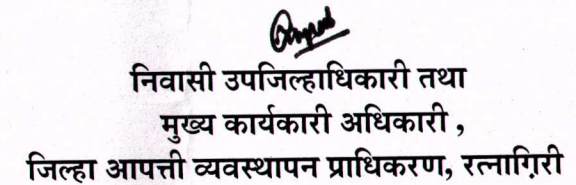 निवासी उपजिल्हाधिकारी तथा
मुख्य कार्यकारी अधिकारी ,
जिल्हा आपत्ती व्यवस्थापन प्राधिकरण, रत्नाग़िरी